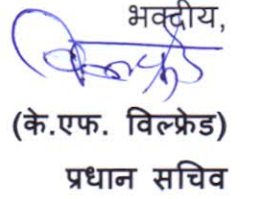 भवदीय,
(के.एफ. विल्फ्रेड)
प्रधान सचिव